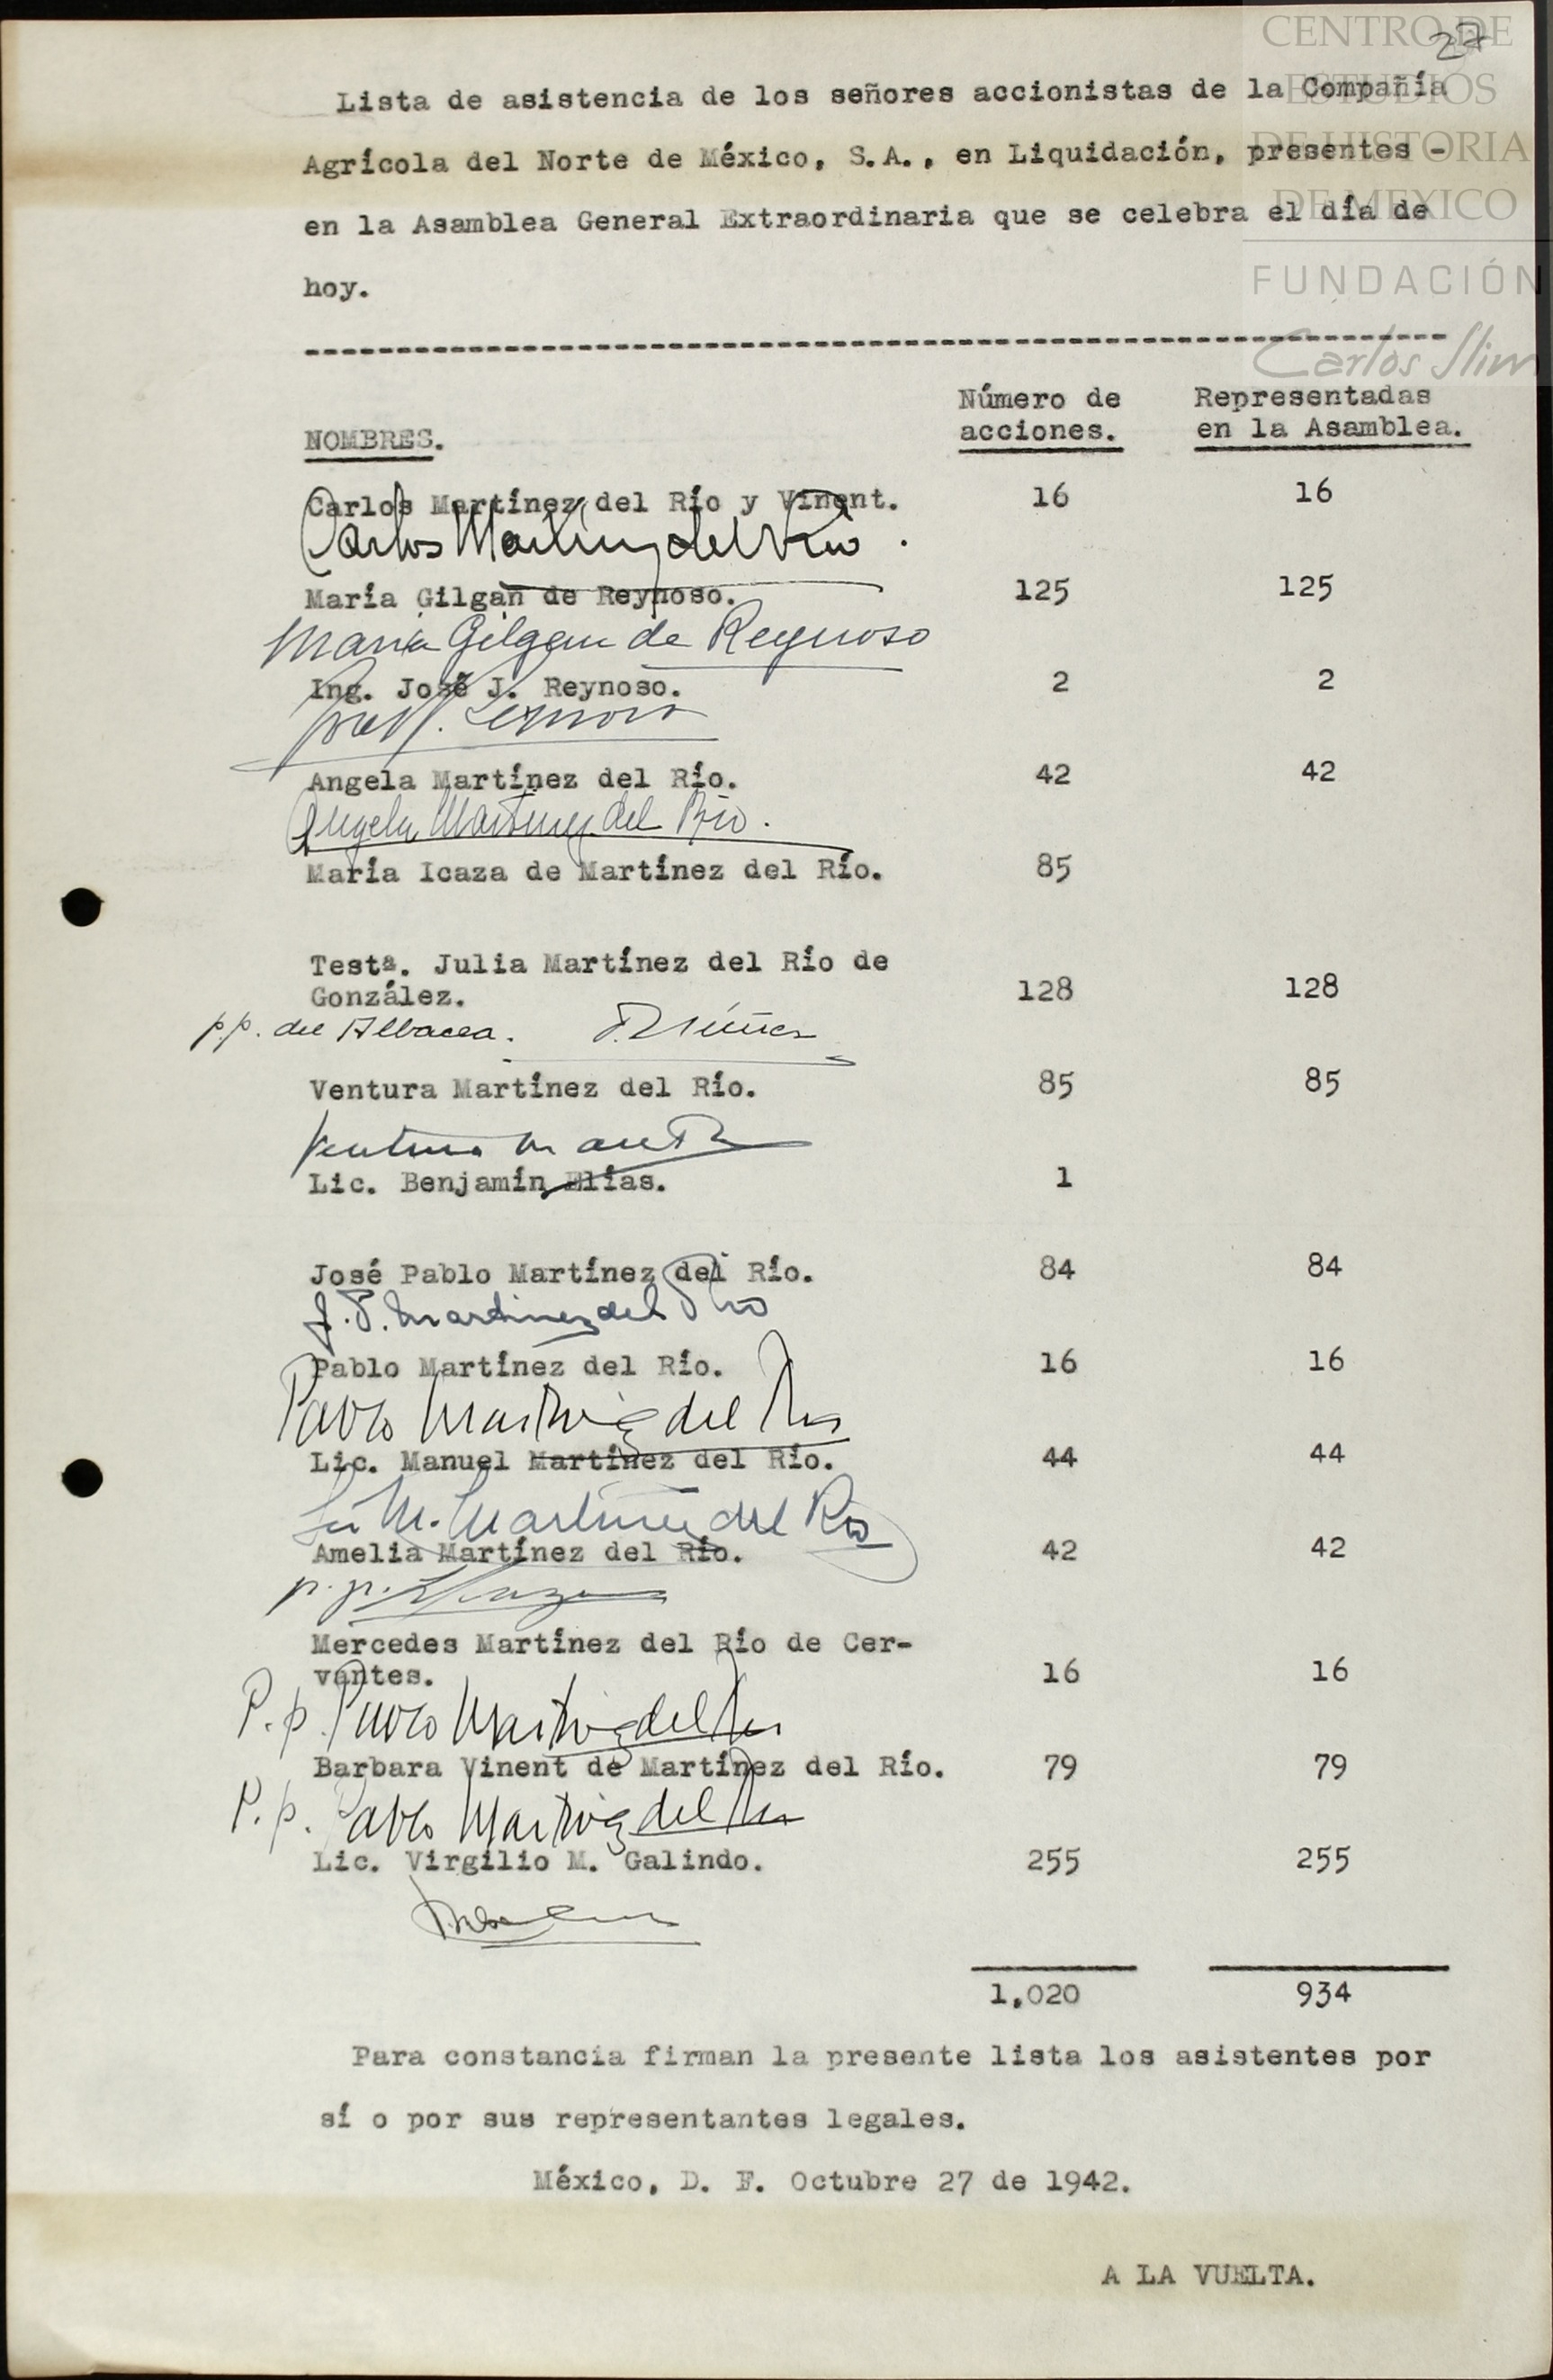 27
CENTRO DE
ESTUDIOS
DE HISTORIA
DE MEXICO
FUNDACIÓN
Carlos Slim
Lista de asistencia de los señores accionistas de la Compañía
Agrícola del Norte de México, S.A., en Liquidación, presentes -
en la Asamblea General Extraordinaria que se celebra el día de
hoy.
NOMBRES. Número de acciones. Representadas en la Asamblea.
Carlos Martínez del Río y Vinent. 16 16
Carlos Martinez del Rio.
María Gilgan de Reynoso. 125 125
Maria Gilgan de Reynoso
Ing. José J. Reynoso. 2 2
José J. Reynoso
Angela Martínez del Río. 42 42
Angela Martinez del Rio.
María Icaza de Martínez del Río. 85
Testª. Julia Martínez del Río de
González. 128 128
p.p. del Albacea.
Ventura Martínez del Río. 85 85
Ventura M
Lic. Benjamín Elías. 1
José Pablo Martínez del Río. 84 84
J. P. Martinez del Rio
Pablo Martínez del Río. 16 16
Pablo Martinez del Rio
Lic. Manuel Martínez del Río. 44 44
Lic M. Martinez del Rio
Amelia Martínez del Río. 42 42
p.p.
Mercedes Martínez del Río de Cer-
vantes. 16 16
P.p. Pablo Martinez del Rio
Barbara Vinent de Martínez del Río. 79 79
P.p. Pablo Martinez del Rio
Lic. Virgilio M. Galindo. 255 255
1,020 934
Para constancia firman la presente lista los asistentes por
sí o por sus representantes legales.
México, D. F. Octubre 27 de 1942.
A LA VUELTA.